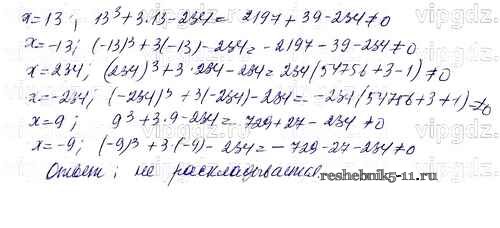 x=13; 13³+3·13-234= 2197+39-234≠0
x=-13; (-13)³+3(-13)-234=-2197-39-234≠0
x=234; (234)³+3·234-234=234(54756+3-1)≠0
x=-234; (-234)³+3(-234)-234=-234(54756+3+1)≠0
x=9; 9³+3·9-234=729+27-234≠0
x=-9; (-9)³+3·(-9)-234=-729-27-234≠0
Ответ: не раскладывается
reshebnik5-11.ru